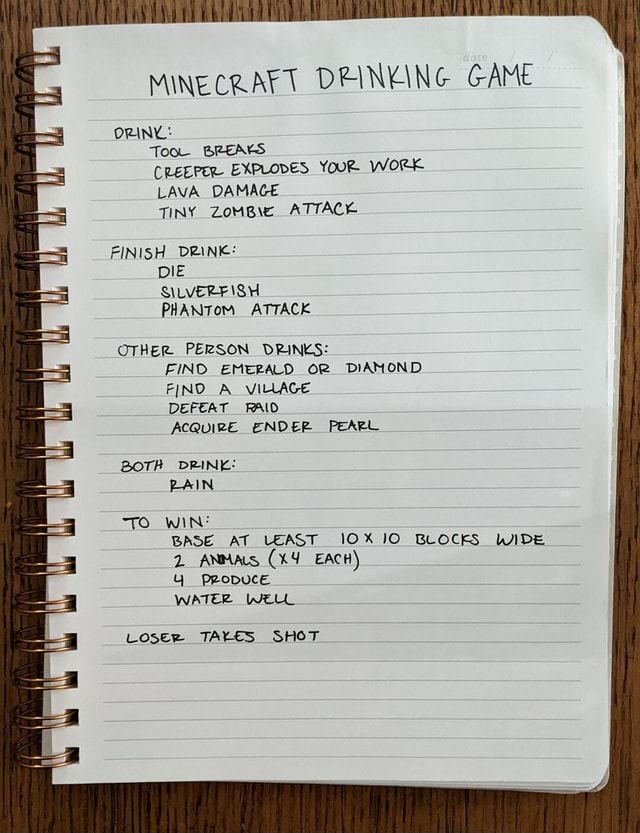 date / /
MINECRAFT DRINKING GAME
DRINK:
TOOL BREAKS
CREEPER EXPLODES YOUR WORK
LAVA DAMAGE
TINY ZOMBIE ATTACK
FINISH DRINK:
DIE
SILVERFISH
PHANTOM ATTACK
OTHER PERSON DRINKS:
FIND EMERALD OR DIAMOND
FIND A VILLAGE
DEFEAT RAID
ACQUIRE ENDER PEARL
BOTH DRINK:
RAIN
TO WIN:
BASE AT LEAST 10 X 10 BLOCKS WIDE
2 ANIMALS (X4 EACH)
4 PRODUCE
WATER WELL
LOSER TAKES SHOT